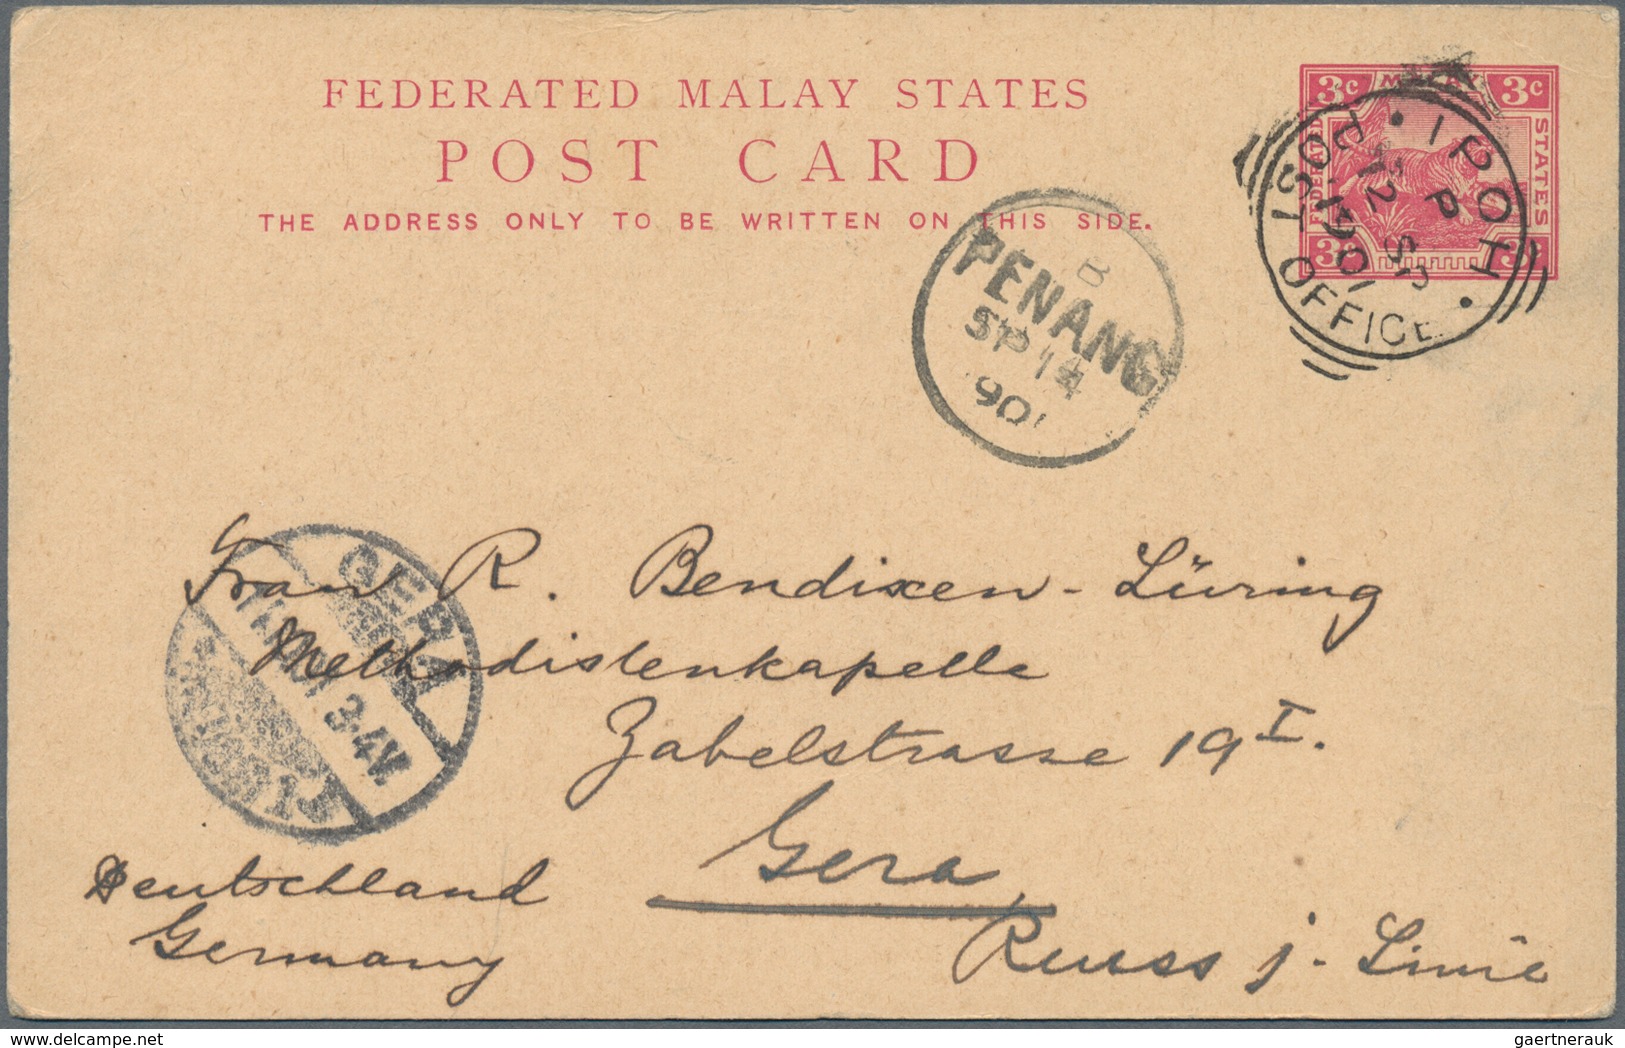 FEDERATED MALAY STATES
POST CARD
THE ADDRESS ONLY TO BE WRITTEN ON THIS SIDE.
3c 3c
FEDERATED
STATES
3c
IPOH
P
12 SP
1901
POST OFFICE
B
PENANG
SP 14
901
GERA
3-4V.
Frau R. Bendixen-Lüring
Methodistenkapelle
Zabelstrasse 19 I.
Gera
Deutschland
Germany
Reuss j. Linie
delcampe.net
gaertnerauk